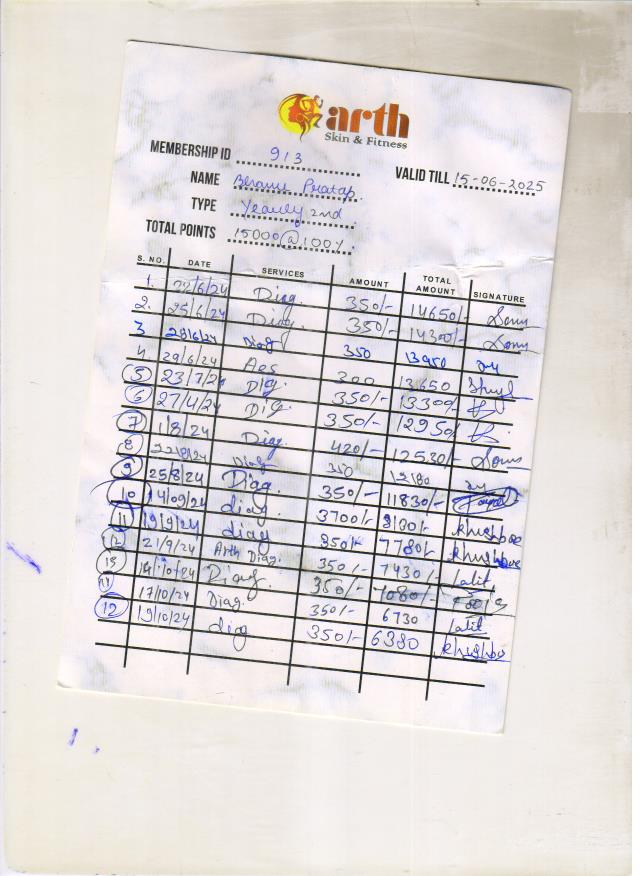 arth
Skin & Fitness
MEMBERSHIP ID 913
VALID TILL 15-06-2025
NAME Pratap.
TYPE Yearly 2nd
TOTAL POINTS 15000@100%
S. NO. DATE SERVICES AMOUNT TOTAL AMOUNT SIGNATURE
1. 22/6/24 Diag. 350/- 14650/-
2. 25/6/24 Diag. 350/- 14300/-
3 28/6/24 Diag 350 13950
4. 29/6/24 Aes 300 13650
5 23/7/24 Dig. 350/- 13300/-
6 27/4/24 Dig. 350/- 12950/-
7 1/8/24 Diag. 420/- 12530/-
8 22/8/24 Diag 350 12180
9 25/8/24 Diag. 350/- 11830/-
10 14/09/24 diag. 3700/- 8130/- khushboo
11 19/9/24 diag 350/- 7780/- khushboo
12 21/9/24 Arth Diag. 350/- 7430/- lalit
13 14/10/24 Diag. 350/- 7080/-
17/10/24 Diag. 350/- 6730 lalit
12 19/10/24 diag 350/- 6380 khushboo